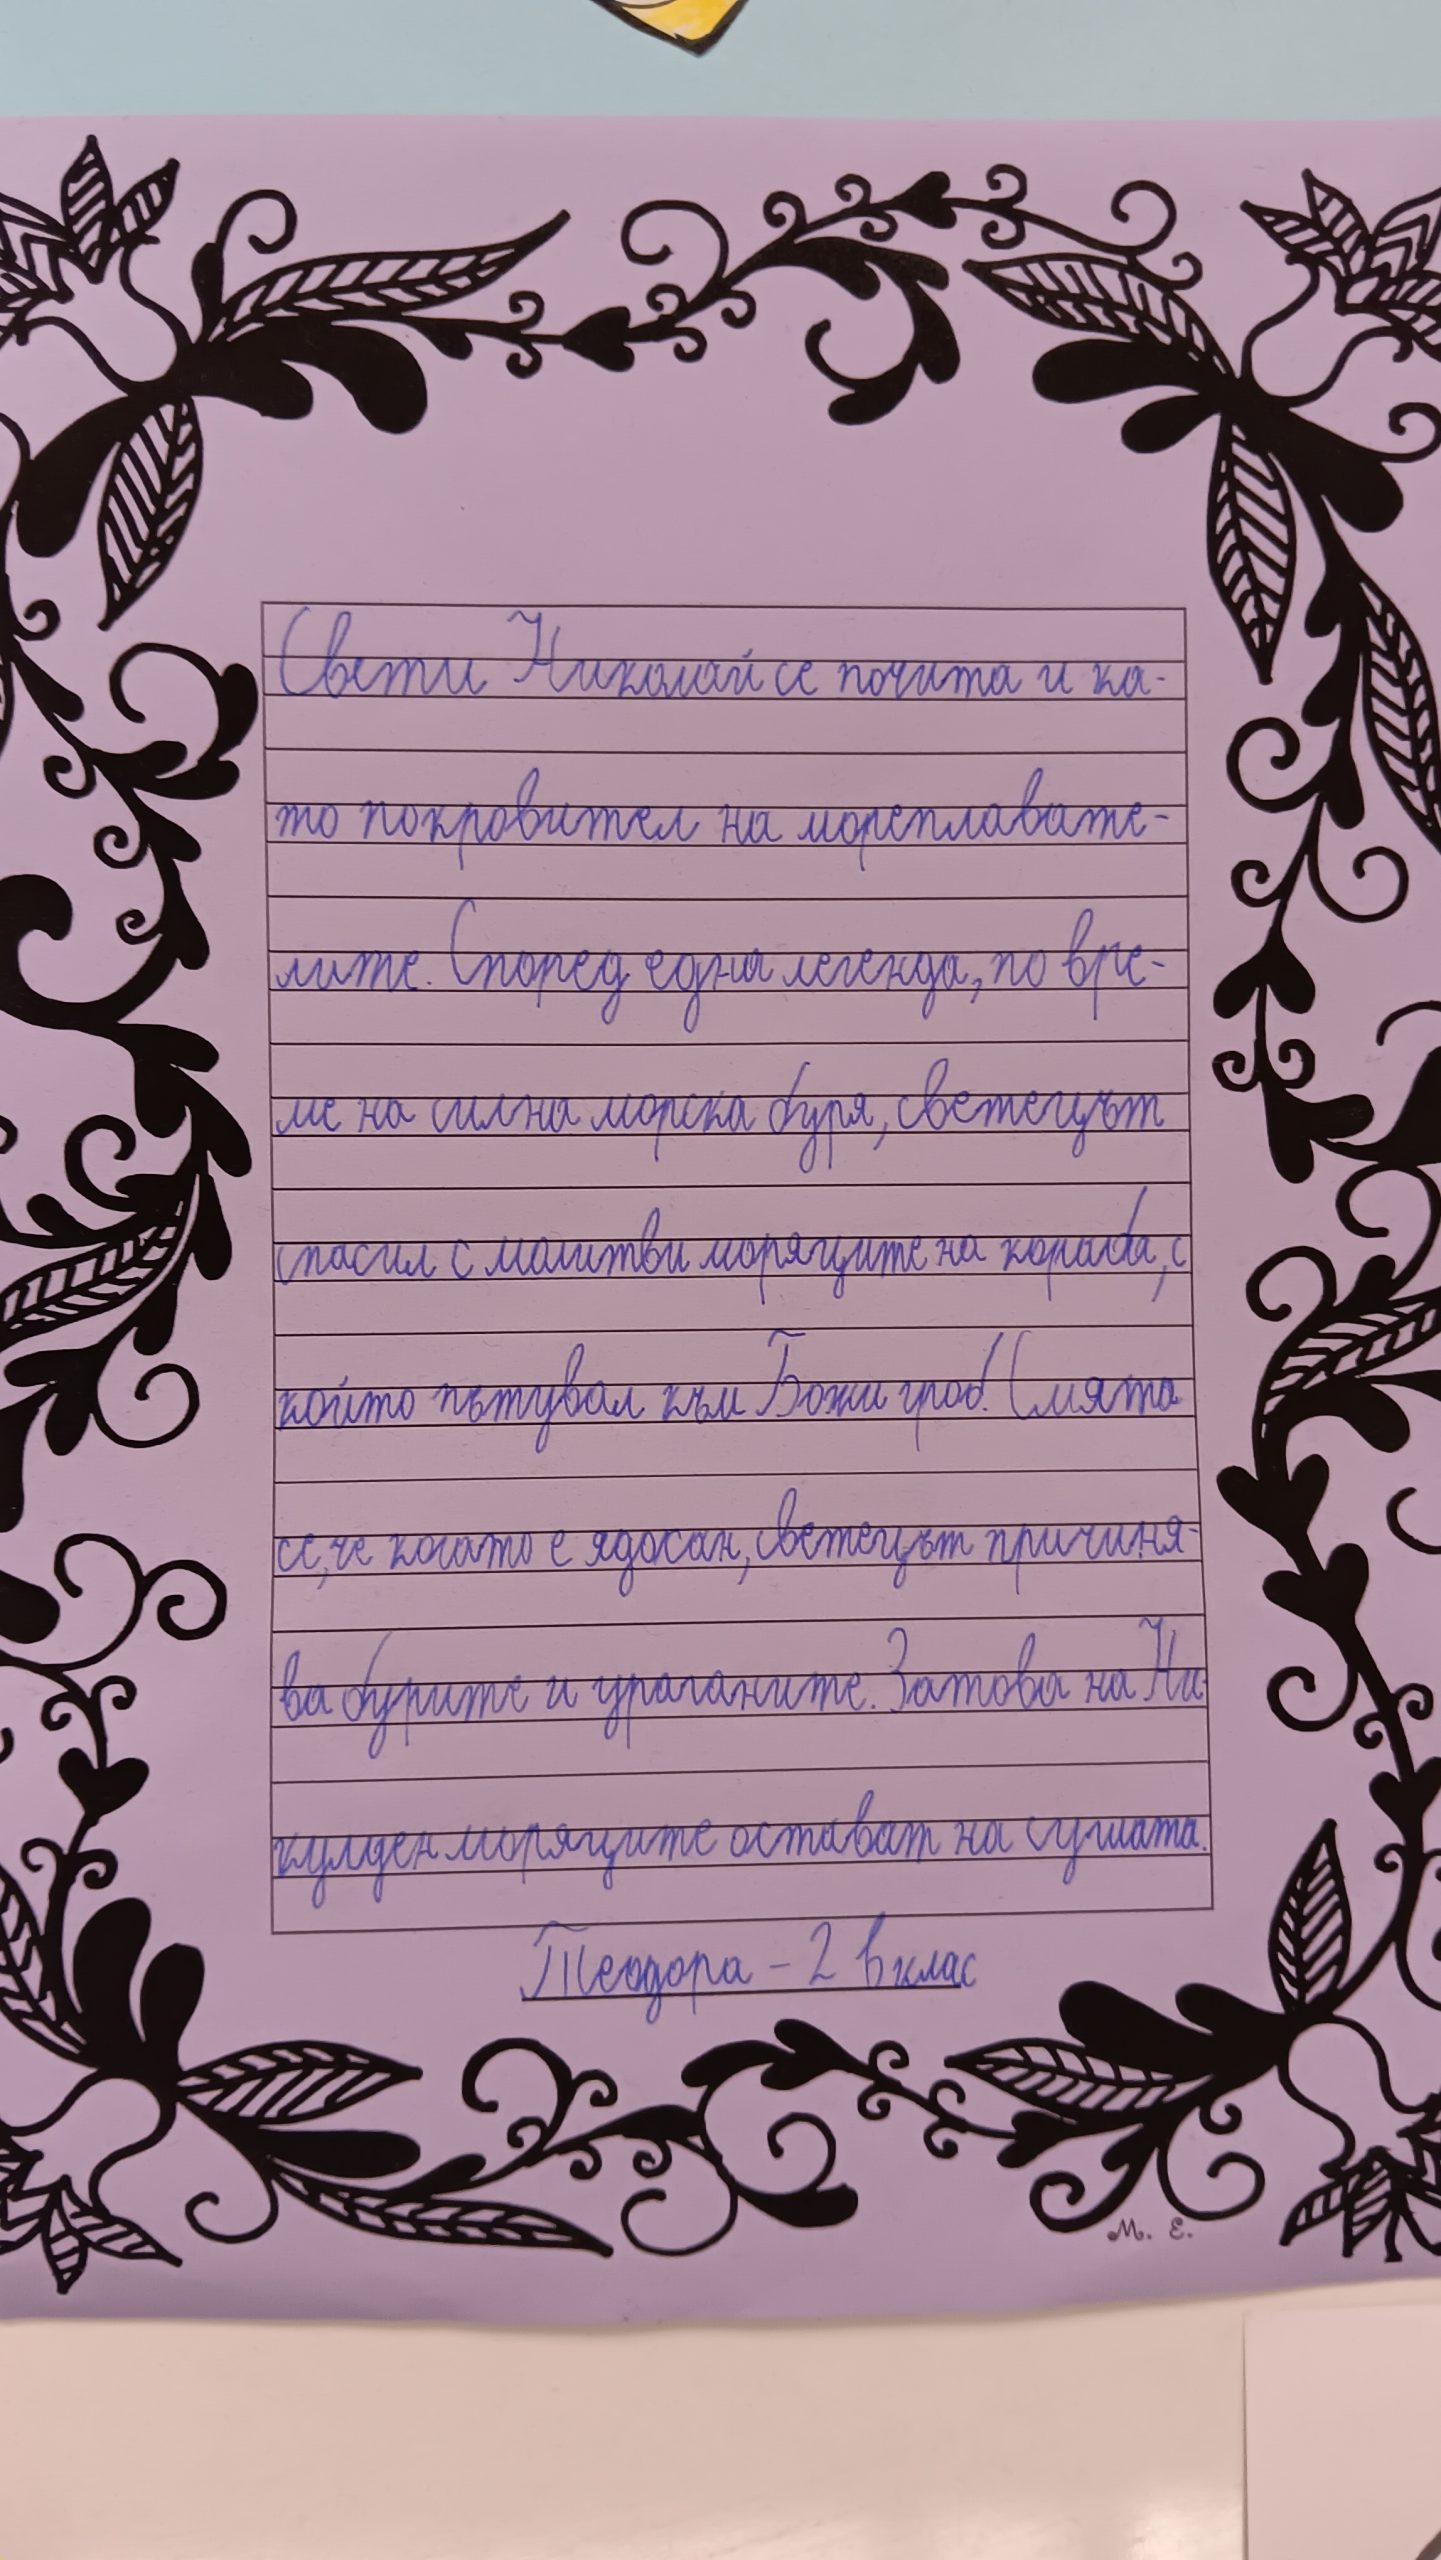 Свети Николай се почита и ка-
то покровител на мореплавате-
лите. Според една легенда, по вре-
ме на силна морска буря, светецът
спасил с молитви моряците на кораба, с
който пътувал към Божи гроб. Смята
се, че когато е ядосан, светецът причиня-
ва бурите и ураганите. Затова на Ни-
кулден моряците остават на сушата.
Теодора - 2 в клас
М. Е.